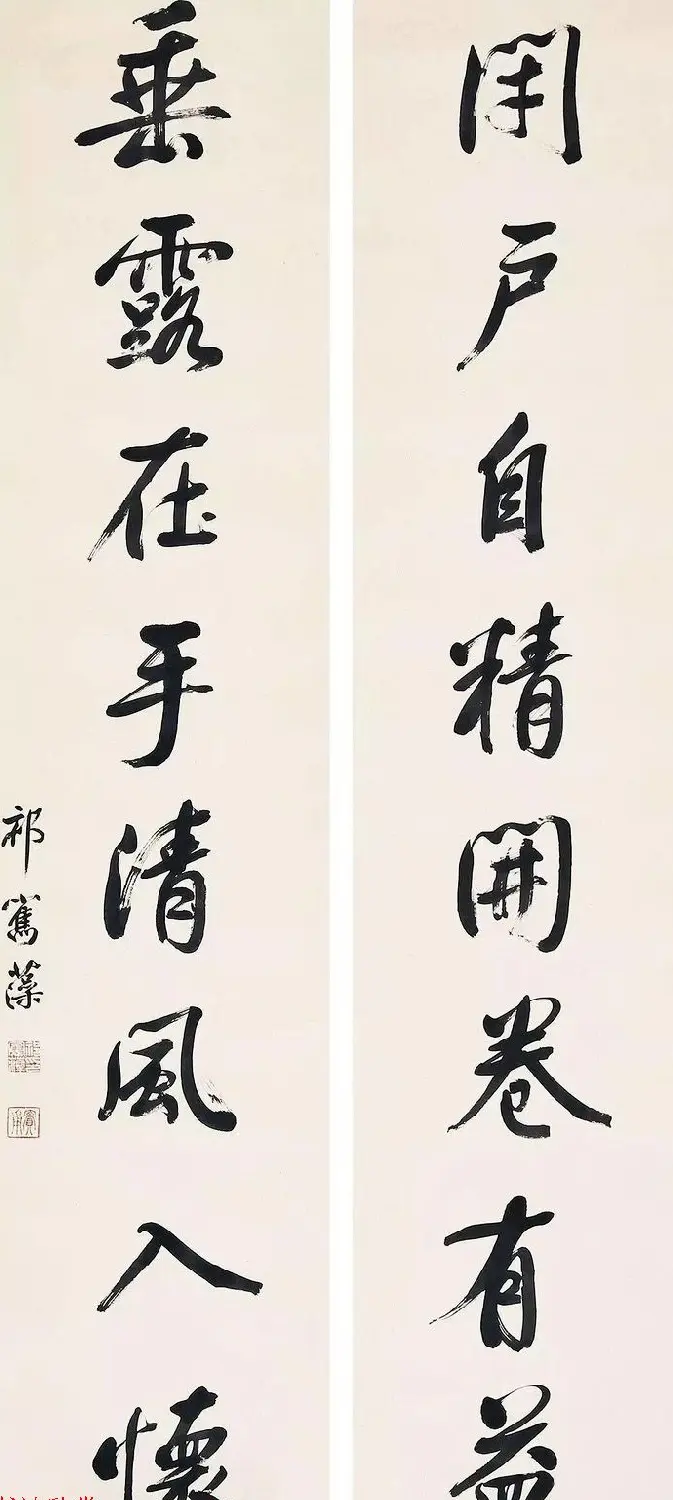 閉戶自精開卷有益
垂露在手清風入懷
祁寯藻